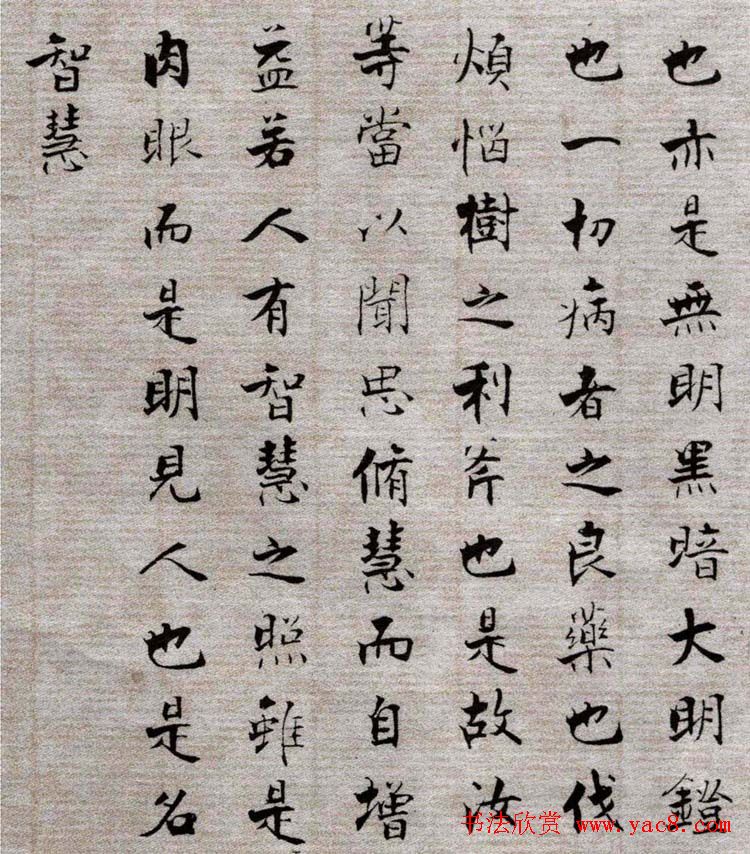 也亦是無明黑暗大明鐙
也一切病者之良藥也伐
煩惱樹之利斧也是故汝
等當以聞思脩慧而自增
益若人有智慧之照雖是
肉眼而是明見人也是名
智慧
书法欣赏 www.yac8.com